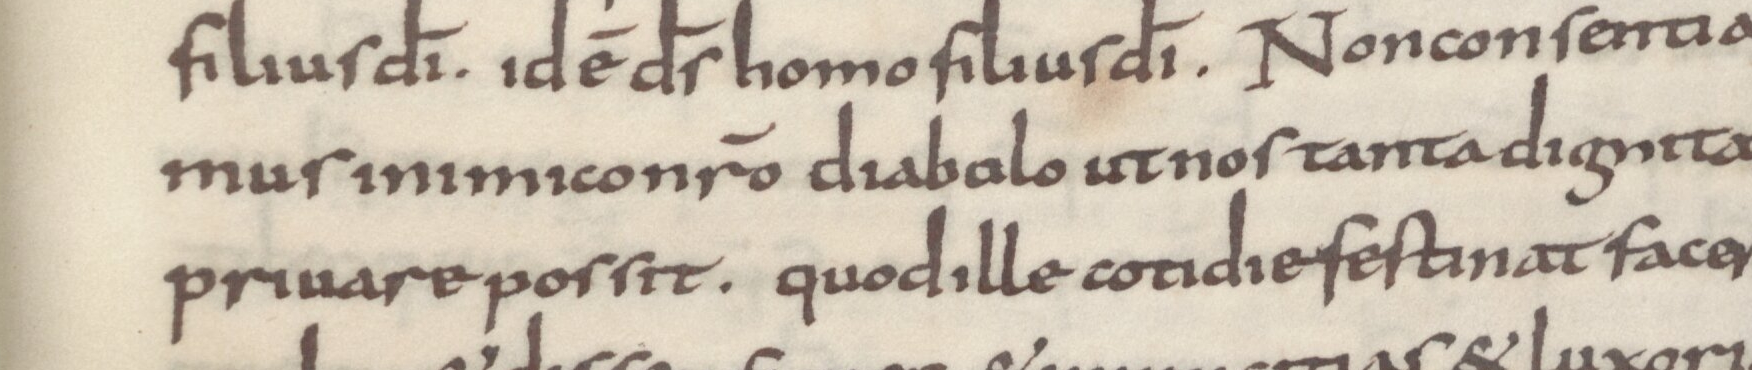 filius dī. idē ds̄ homo filius dī. Non consentia
mus inimico nrō diabolo ut nos tanta dignita
priuare possit. quod ille cotidie festinat facer
& luxori